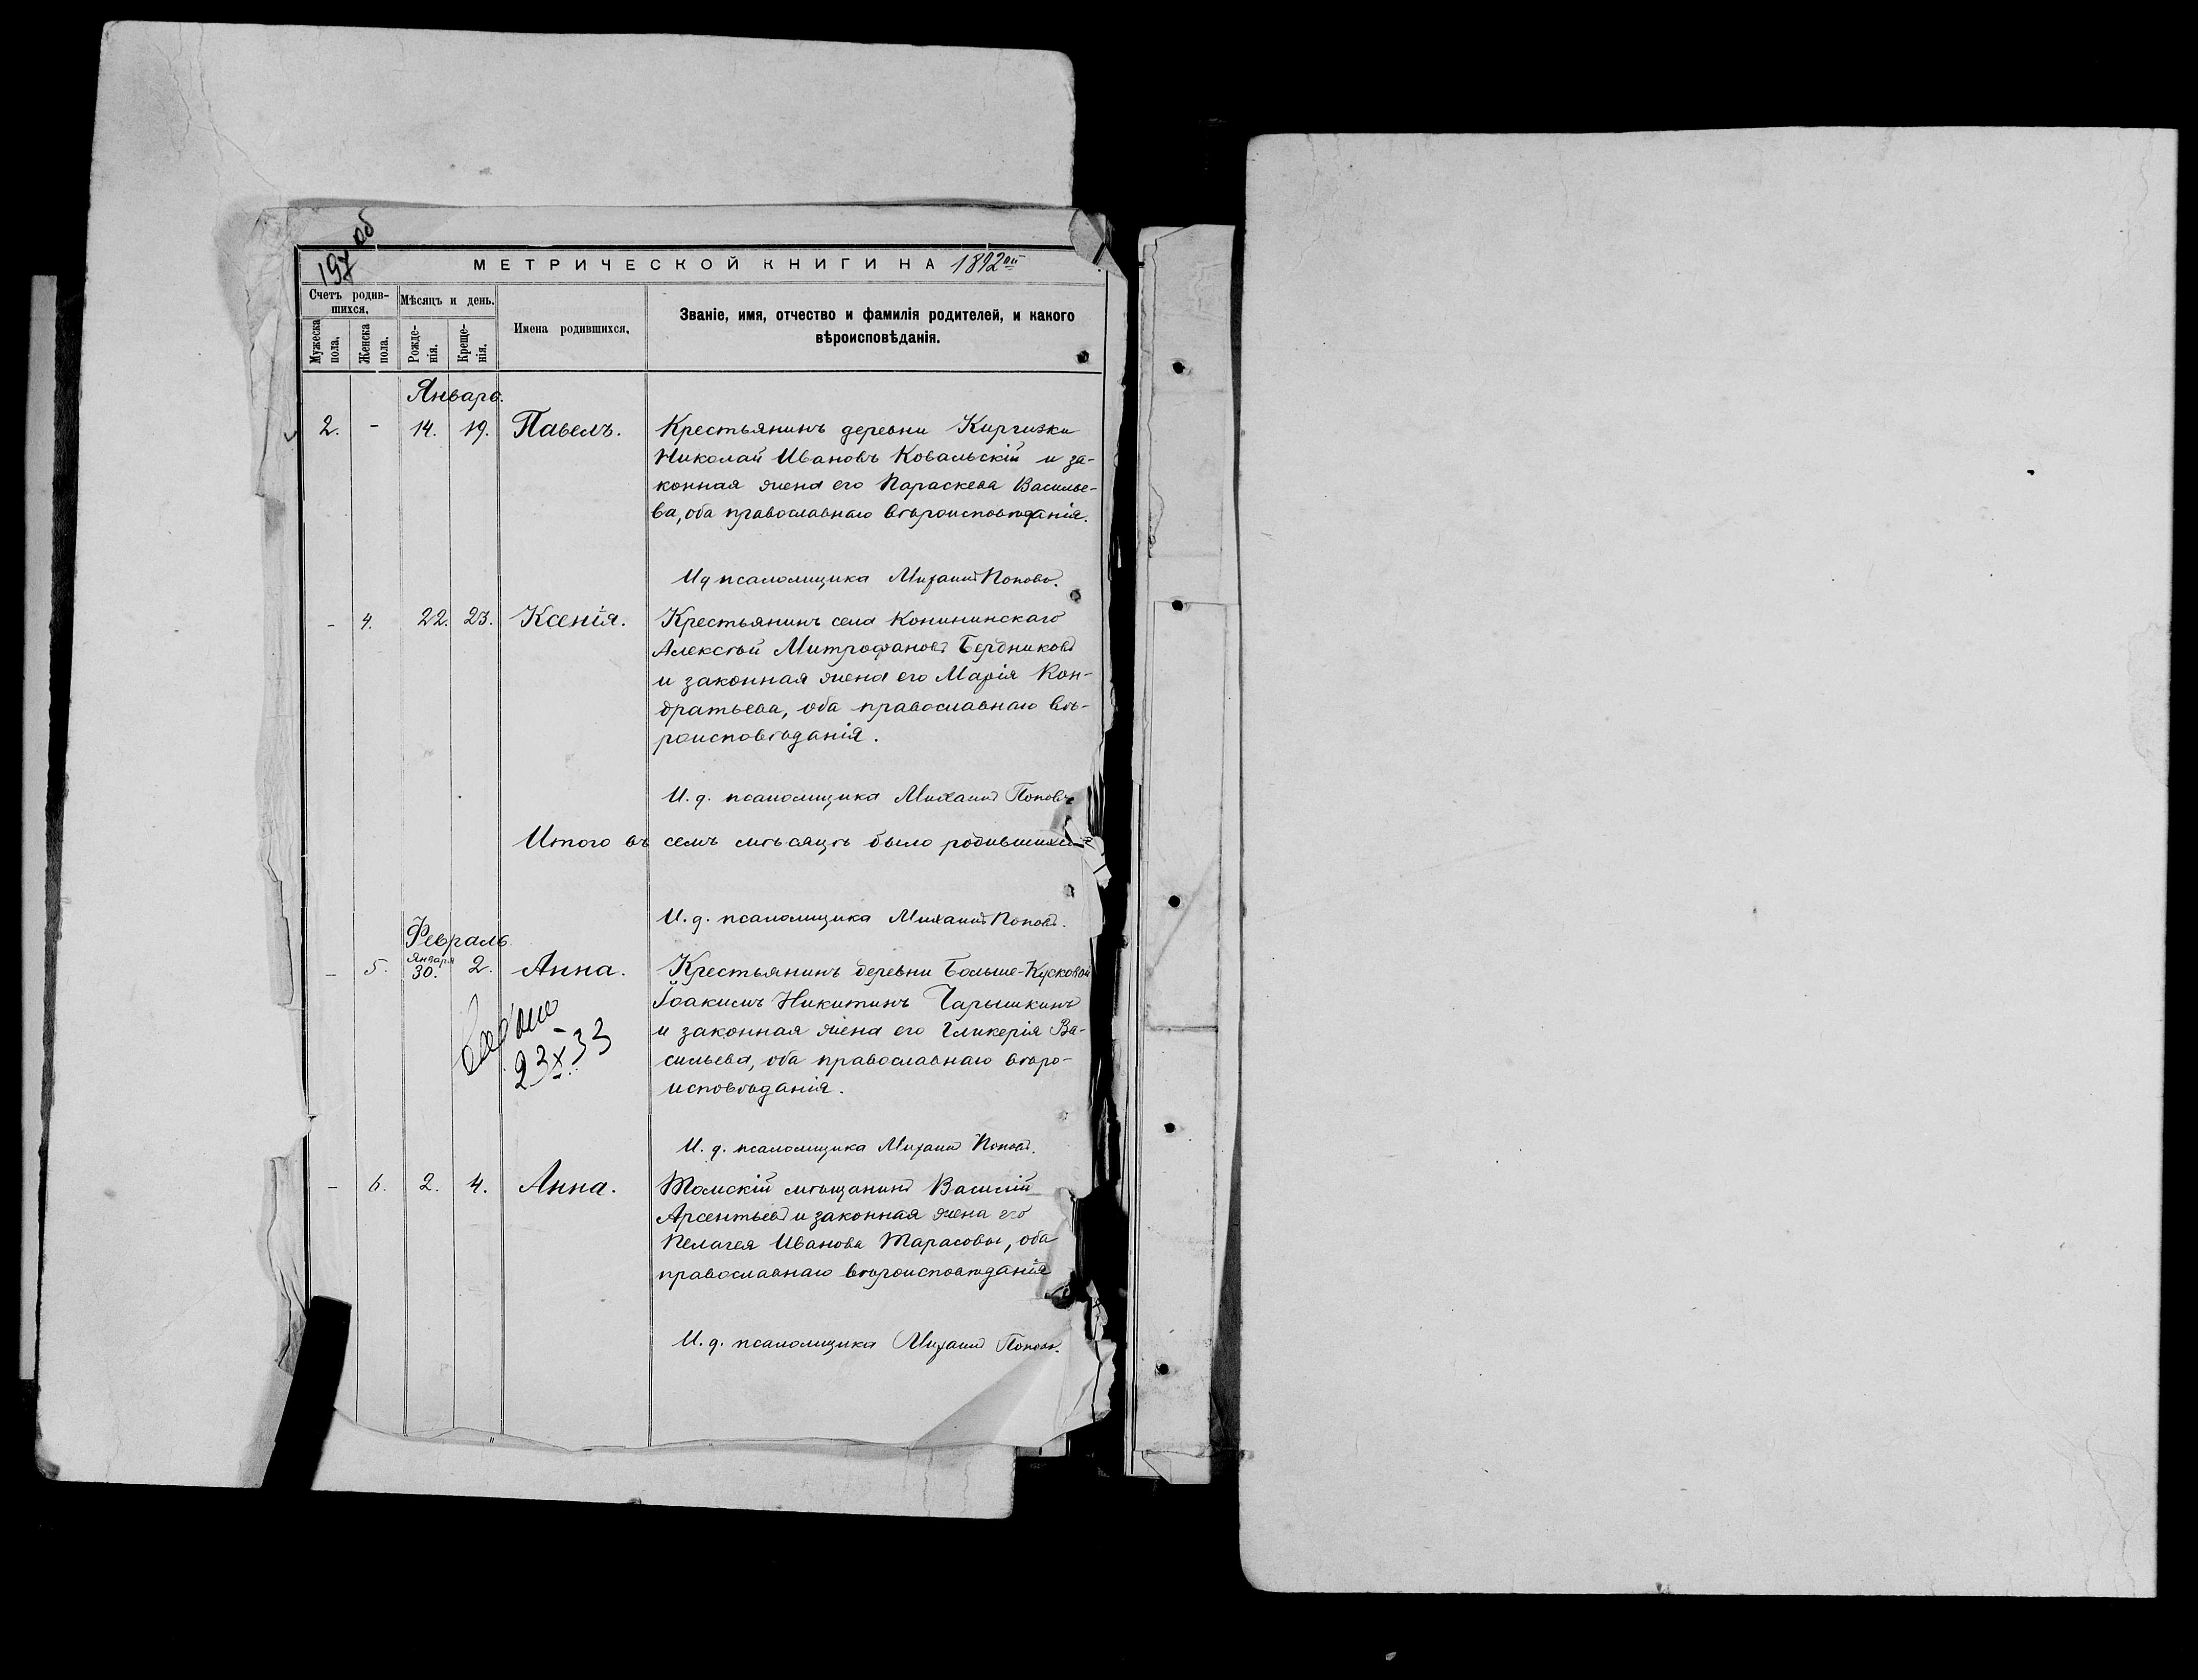 197 об
МЕТРИЧЕСКОЙ КНИГИ НА 1892 ой
Счетъ родив-
шихся,
Мѣсяцъ и день.
Имена родившихся,
Званіе, имя, отчество и фамилія родителей, и какого
вѣроисповѣданія.
Мужеска
пола,
Женска
пола.
Рожде-
нія.
Креще-
нія.
Январь.
2. - 14. 19. Павелъ. Крестьянинъ деревни Киргизки
Николай Ивановъ Ковальскій и за-
конная жена его Параскева Василье-
ва, оба православнаго вѣроисповѣданія.
И д псаломщика Михаилъ Поповъ.
- 4. 22. 23. Ксенія. Крестьянинъ села Конининскаго
Алексѣй Митрофановъ Бердниковъ
и законная жена его Марія Кон-
дратьева, оба православнаго вѣ-
роисповѣданія.
И. д. псаломщика Михаилъ Поповъ
Итого въ семъ мѣсяцѣ было родившихся
И. д. псаломщика Михаилъ Поповъ.
Февраль
- 5. Января 30. 2. Анна. Крестьянинъ деревни Больше-Кусковой
Іоакимъ Никитинъ Чарышкинъ
и законная жена его Гликерія Ва-
сильева, оба православнаго вѣро-
исповѣданія.
23 X 33
И. д. псаломщика Михаилъ Поповъ.
- 6. 2. 4. Анна. Томскій мѣщанинъ Василій
Арсентьевъ и законная жена его
Пелагея Иванова Тарасовы, оба
православнаго вѣроисповѣданія
И. д. псаломщика Михаилъ Поповъ.